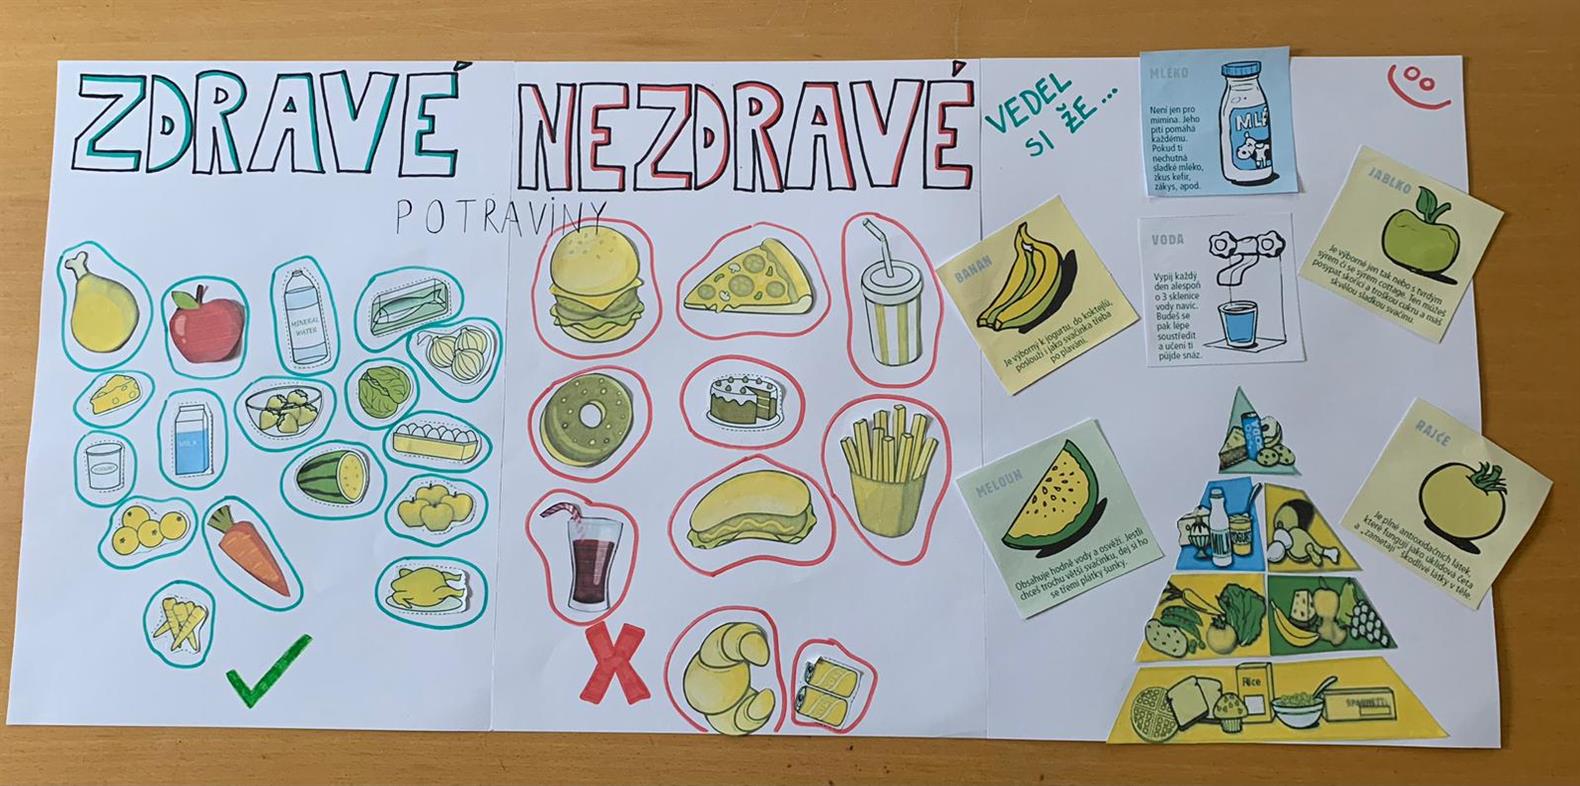 ZDRAVÉ
NEZDRAVÉ
POTRAVINY
MINERAL
WATER
MILK
VEDEL
SI ŽE...
MLÉKO
Není jen pro
mimina. Jeho
pití pomáhá
každému.
Pokud ti
nechutná
sladké mléko,
zkus kefír,
zákys, apod.
MLÉ
BANAN
Je výborný k jogurtu, do koktejlů,
poslouží i jako svačinka třeba
po plavání.
VODA
Vypij každý
den alespoň
o 3 sklenice
vody navíc.
Budeš se
pak lépe
soustředit
a učení ti
půjde snáz.
JABLKO
Je výborné jen tak nebo s tvrdým
sýrem či se sýrem cottage. Ten můžeš
posypat skořicí a troškou cukru a máš
skvělou sladkou svačinu.
MELOUN
Obsahuje hodně vody a osvěží. Jestli
chceš trochu větší svačinku, dej si ho
se třemi plátky šunky.
RAJČE
Je plné antioxidačních látek,
které fungují jako úklidová četa
a „zametají" škodlivé látky v těle.
MILK
Rice
SPAGHETTI